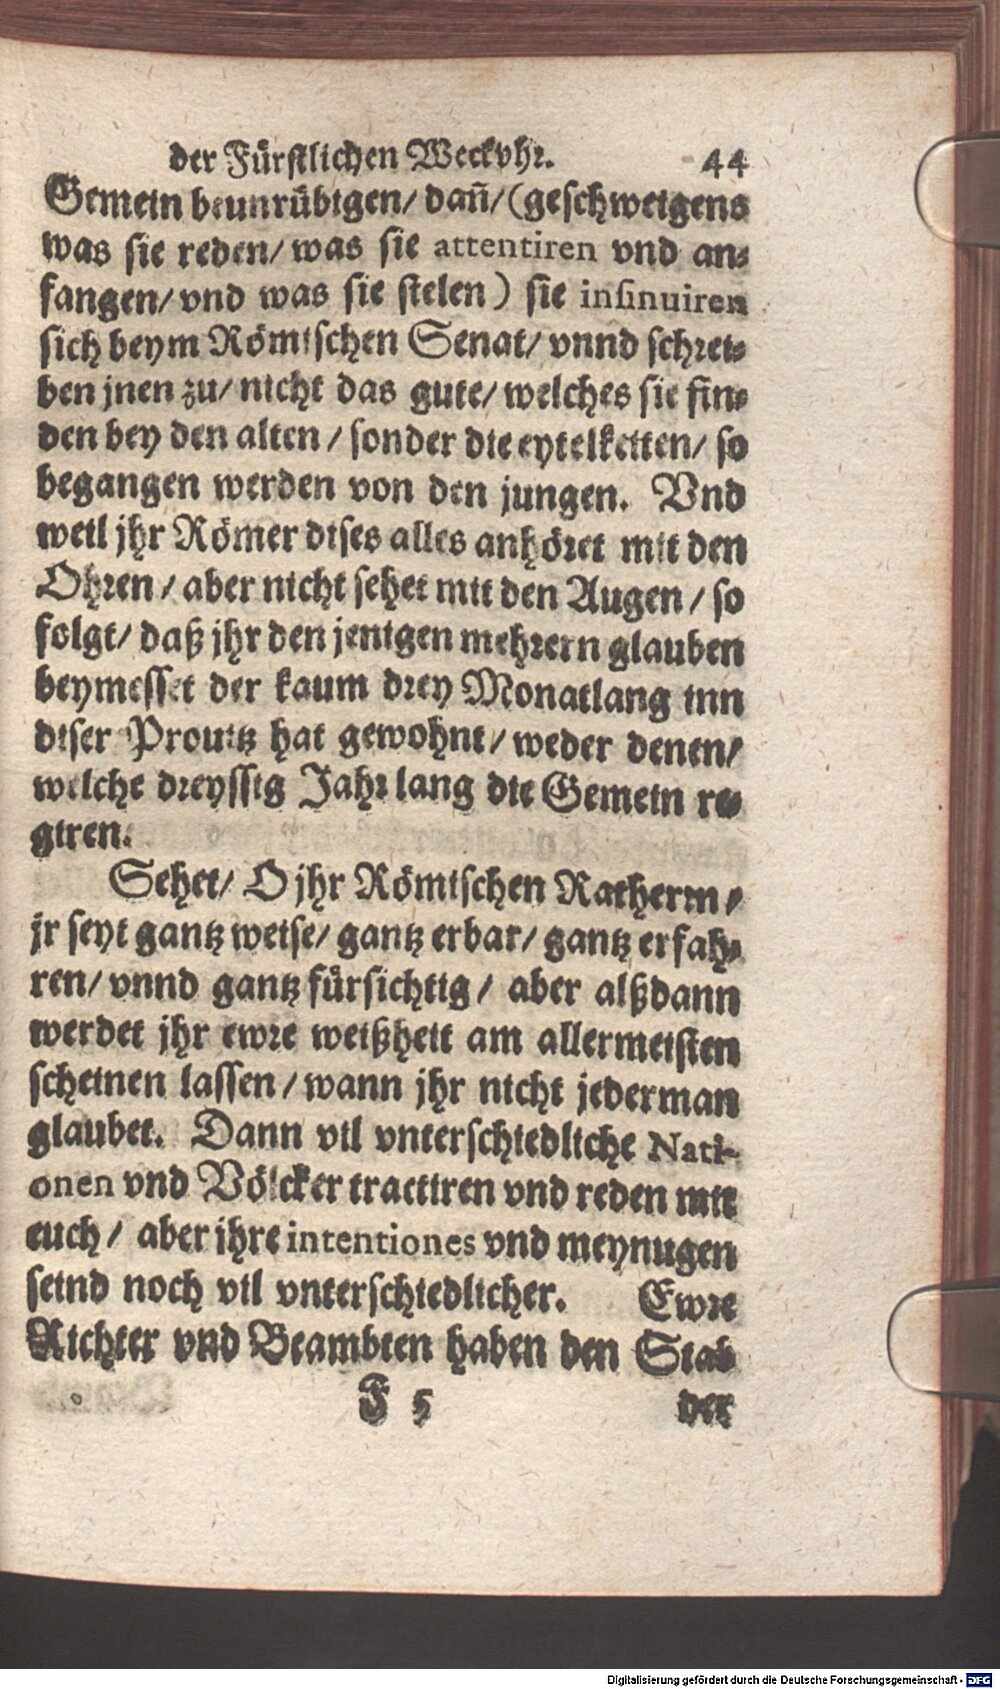 der Fürstlichen Weckvhr. 44
Gemein beunrühigen/ dañ/ (geschweigens
was sie reden/ was sie attentiren vnd an-
fangen/ vnd was sie stelen) sie insinuiren
sich beym Römischen Senat/ vnnd schrei-
ben jnen zu/ nicht das gute/ welches sie fin-
den bey den alten / sonder die eytelkeiten/ so
begangen werden von den jungen. Vnd
weil jhr Römer dises alles anhöret mit den
Ohren / aber nicht sehet mit den Augen / so
folgt/ daß jhr den jenigen mehrern glauben
beymesset der kaum drey Monatlang inn
diser Prouitz hat gewohnt/ weder denen/
welche dreyssig Jahr lang die Gemein re-
giren.
Sehet/ O jhr Römischen Rathern /
jr seyt gantz weise/ gantz erbar/ gantz erfah-
ren/ vnnd gantz fürsichtig / aber alßdann
werdet jhr ewre weißheit am allermeisten
scheinen lassen / wann jhr nicht jederman
glaubet. Dann vil vnterschiedliche Nati-
onen vnd Völcker tractiren vnd reden mit
euch / aber jhre intentiones vnd meynugen
seind noch vil vnterschiedlicher. Ewre
Richter vnd Beambten haben den Stab
F 5 der
Digitalisierung gefördert durch die Deutsche Forschungsgemeinschaft - DFG